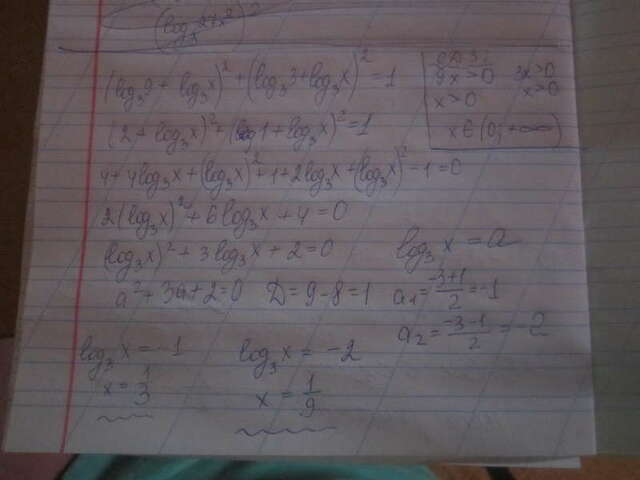 (log₃9 + log₃x)² + (log₃3 + log₃x)² = 1
ОДЗ:
9x>0 3x>0
x>0 x>0
x∈(0;+∞)
(2 + log₃x)² + (1 + log₃x)² = 1
4+4log₃x+(log₃x)²+1+2log₃x+(log₃x)²-1=0
2(log₃x)² + 6log₃x + 4 = 0
(log₃x)² + 3log₃x + 2 = 0
log₃x = a
a² + 3a + 2 = 0 D = 9-8 = 1
a₁ = (-3+1)/2 = -1
a₂ = (-3-1)/2 = -2
log₃x = -1
x = 1/3
log₃x = -2
x = 1/9